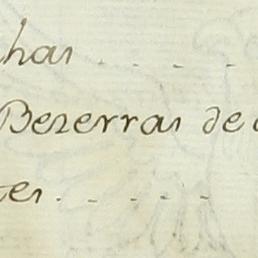 lhas . . . .
Bezerras de
tes . . . .